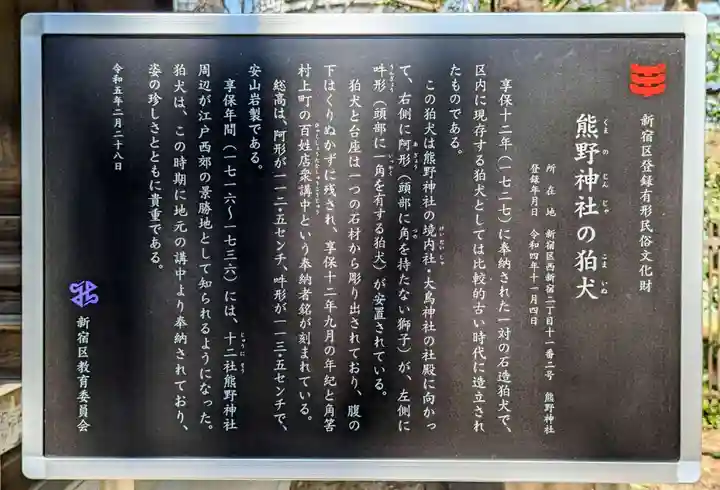 新宿区登録有形民俗文化財
熊野神社の狛犬
くまのじんじゃ こまいぬ
所在地 新宿区西新宿二丁目十一番二号 熊野神社
登録年月日 令和四年十一月四日
享保十二年(一七二七)に奉納された一対の石造狛犬で、
区内に現存する狛犬としては比較的古い時代に造立され
たものである。
この狛犬は熊野神社の境内社・大鳥神社の社殿に向かっ
けいだいしゃ
て、右側に阿形(頭部に角を持たない獅子)が、左側に
あぎょう つの
吽形(頭部に一角を有する狛犬)が安置されている。
うんぎょう いっかく
狛犬と台座は一つの石材から彫り出されており、腹の
下はくりぬかずに残され、享保十二年九月の年紀と角筈
村上町の百姓店衆講中という奉納者銘が刻まれている。
ひゃくしょうたなしゅうこうじゅう
総高は、阿形が一一二・五センチ、吽形が一一三・五センチで、
安山岩製である。
享保年間(一七一六〜一七三六)には、十二社熊野神社
じゅうにそう
周辺が江戸西郊の景勝地として知られるようになった。
狛犬は、この時期に地元の講中より奉納されており、
姿の珍しさとともに貴重である。
令和五年二月二十八日
新宿区教育委員会